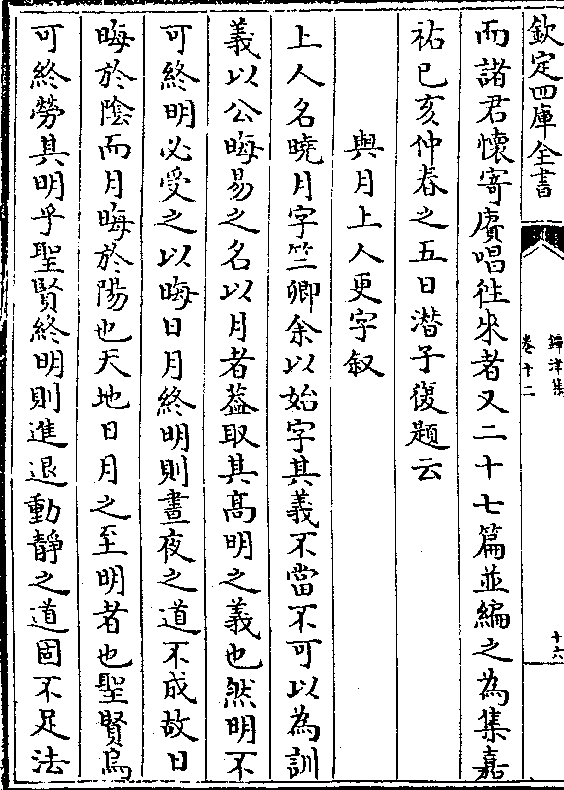 欽定四庫全書
鐔津集
卷十二
十六
而諸君懷寄賡唱徃來者又二十七篇並編之為集嘉
祐已亥仲春之五日潜子復題云
與月上人更字叙
上人名曉月字竺卿余以始字其義不當不可以為訓
義以公晦易之名以月者葢取其髙明之義也然明不
可終明必受之以晦日月終明則晝夜之道不成故日
晦於陰而月晦於陽也天地日月之至明者也聖賢烏
可終勞其明乎聖賢終明則進退動靜之道固不足法